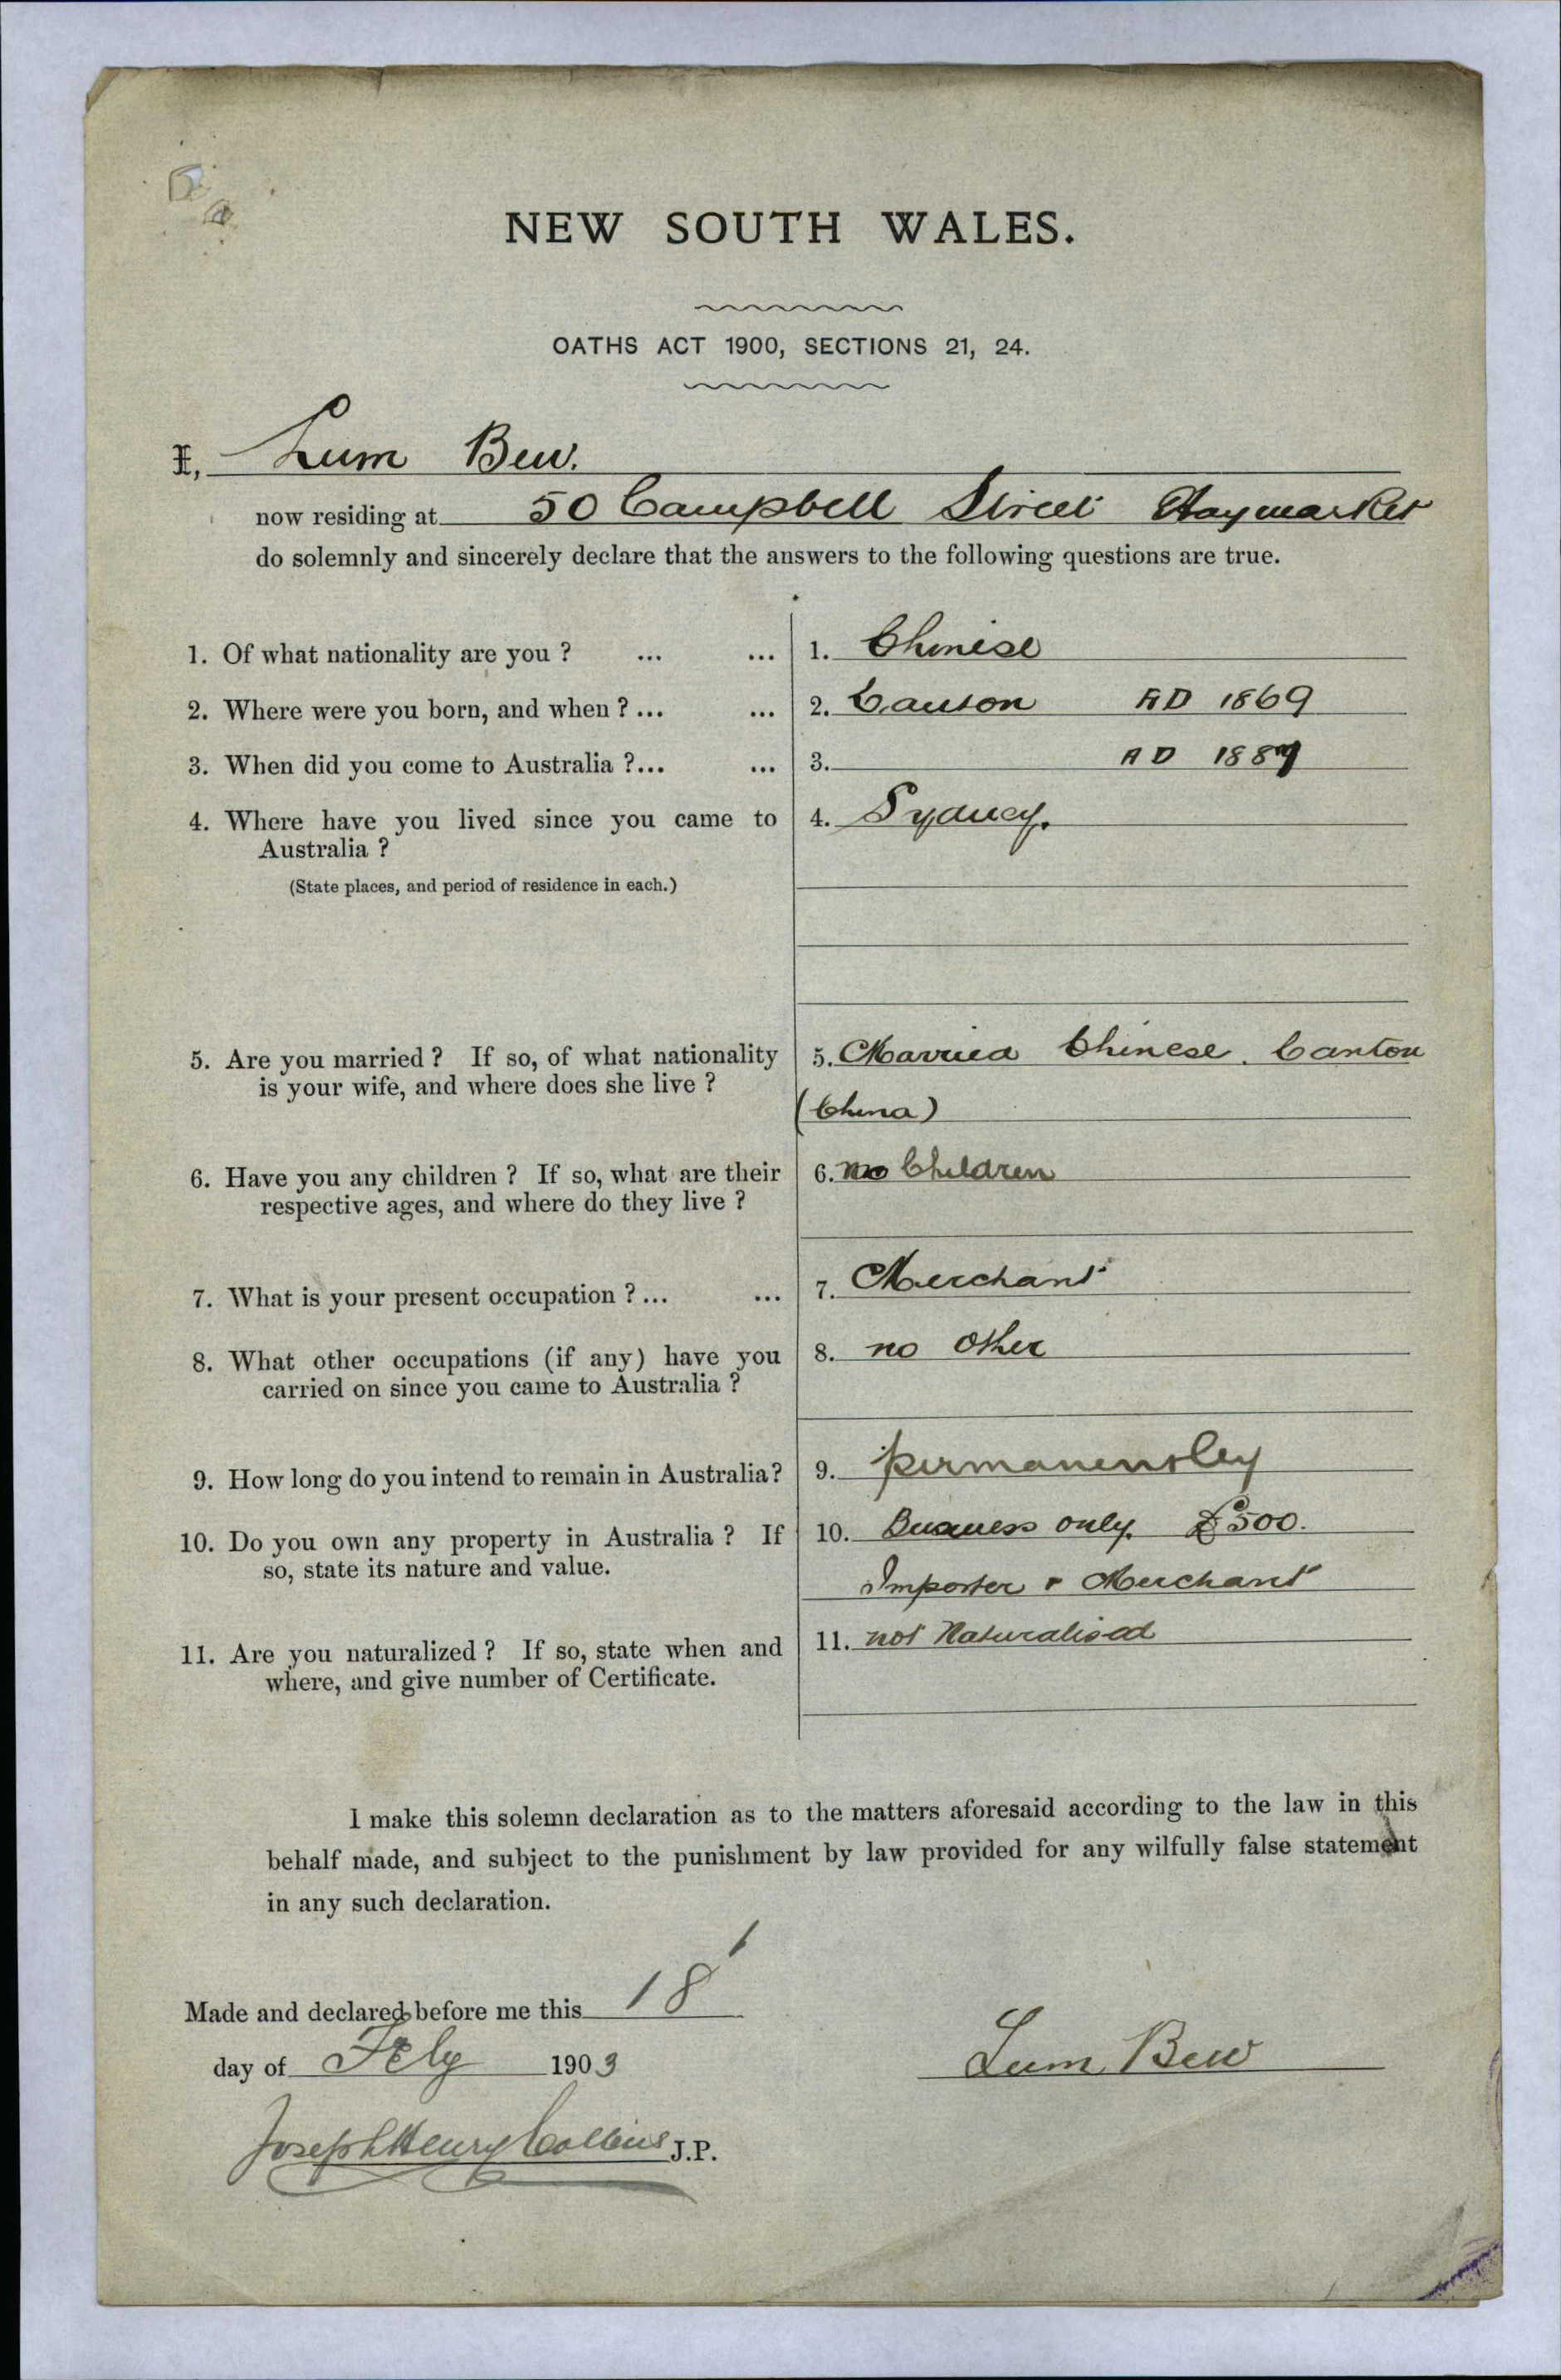 NEW SOUTH WALES.
OATHS ACT 1900, SECTIONS 21, 24.
I, Lum Bew.
now residing at 50 Campbell Street Haymarket
do solemnly and sincerely declare that the answers to the following questions are true.
1. Of what nationality are you ? ... ... 1. Chinese
2. Where were you born, and when ? ... ... 2. Canton AD 1869
3. When did you come to Australia ? ... ... 3. AD 1887
4. Where have you lived since you came to 4. Sydney.
Australia ?
(State places, and period of residence in each.)
5. Are you married ? If so, of what nationality 5. Married Chinese. Canton
is your wife, and where does she live ?
(China)
6. Have you any children ? If so, what are their 6. no Children
respective ages, and where do they live ?
7. What is your present occupation ? ... ... 7. Merchant
8. What other occupations (if any) have you 8. no other
carried on since you came to Australia ?
9. How long do you intend to remain in Australia? 9. permanentley
10. Do you own any property in Australia ? If 10. Business only. £500.
so, state its nature and value.
Importer & Merchant
11. Are you naturalized ? If so, state when and 11. not Naturalised
where, and give number of Certificate.
I make this solemn declaration as to the matters aforesaid according to the law in this
behalf made, and subject to the punishment by law provided for any wilfully false statement
in any such declaration.
Made and declared before me this 18
day of Feby 1903
Lum Bew
Joseph Henry Collins J.P.